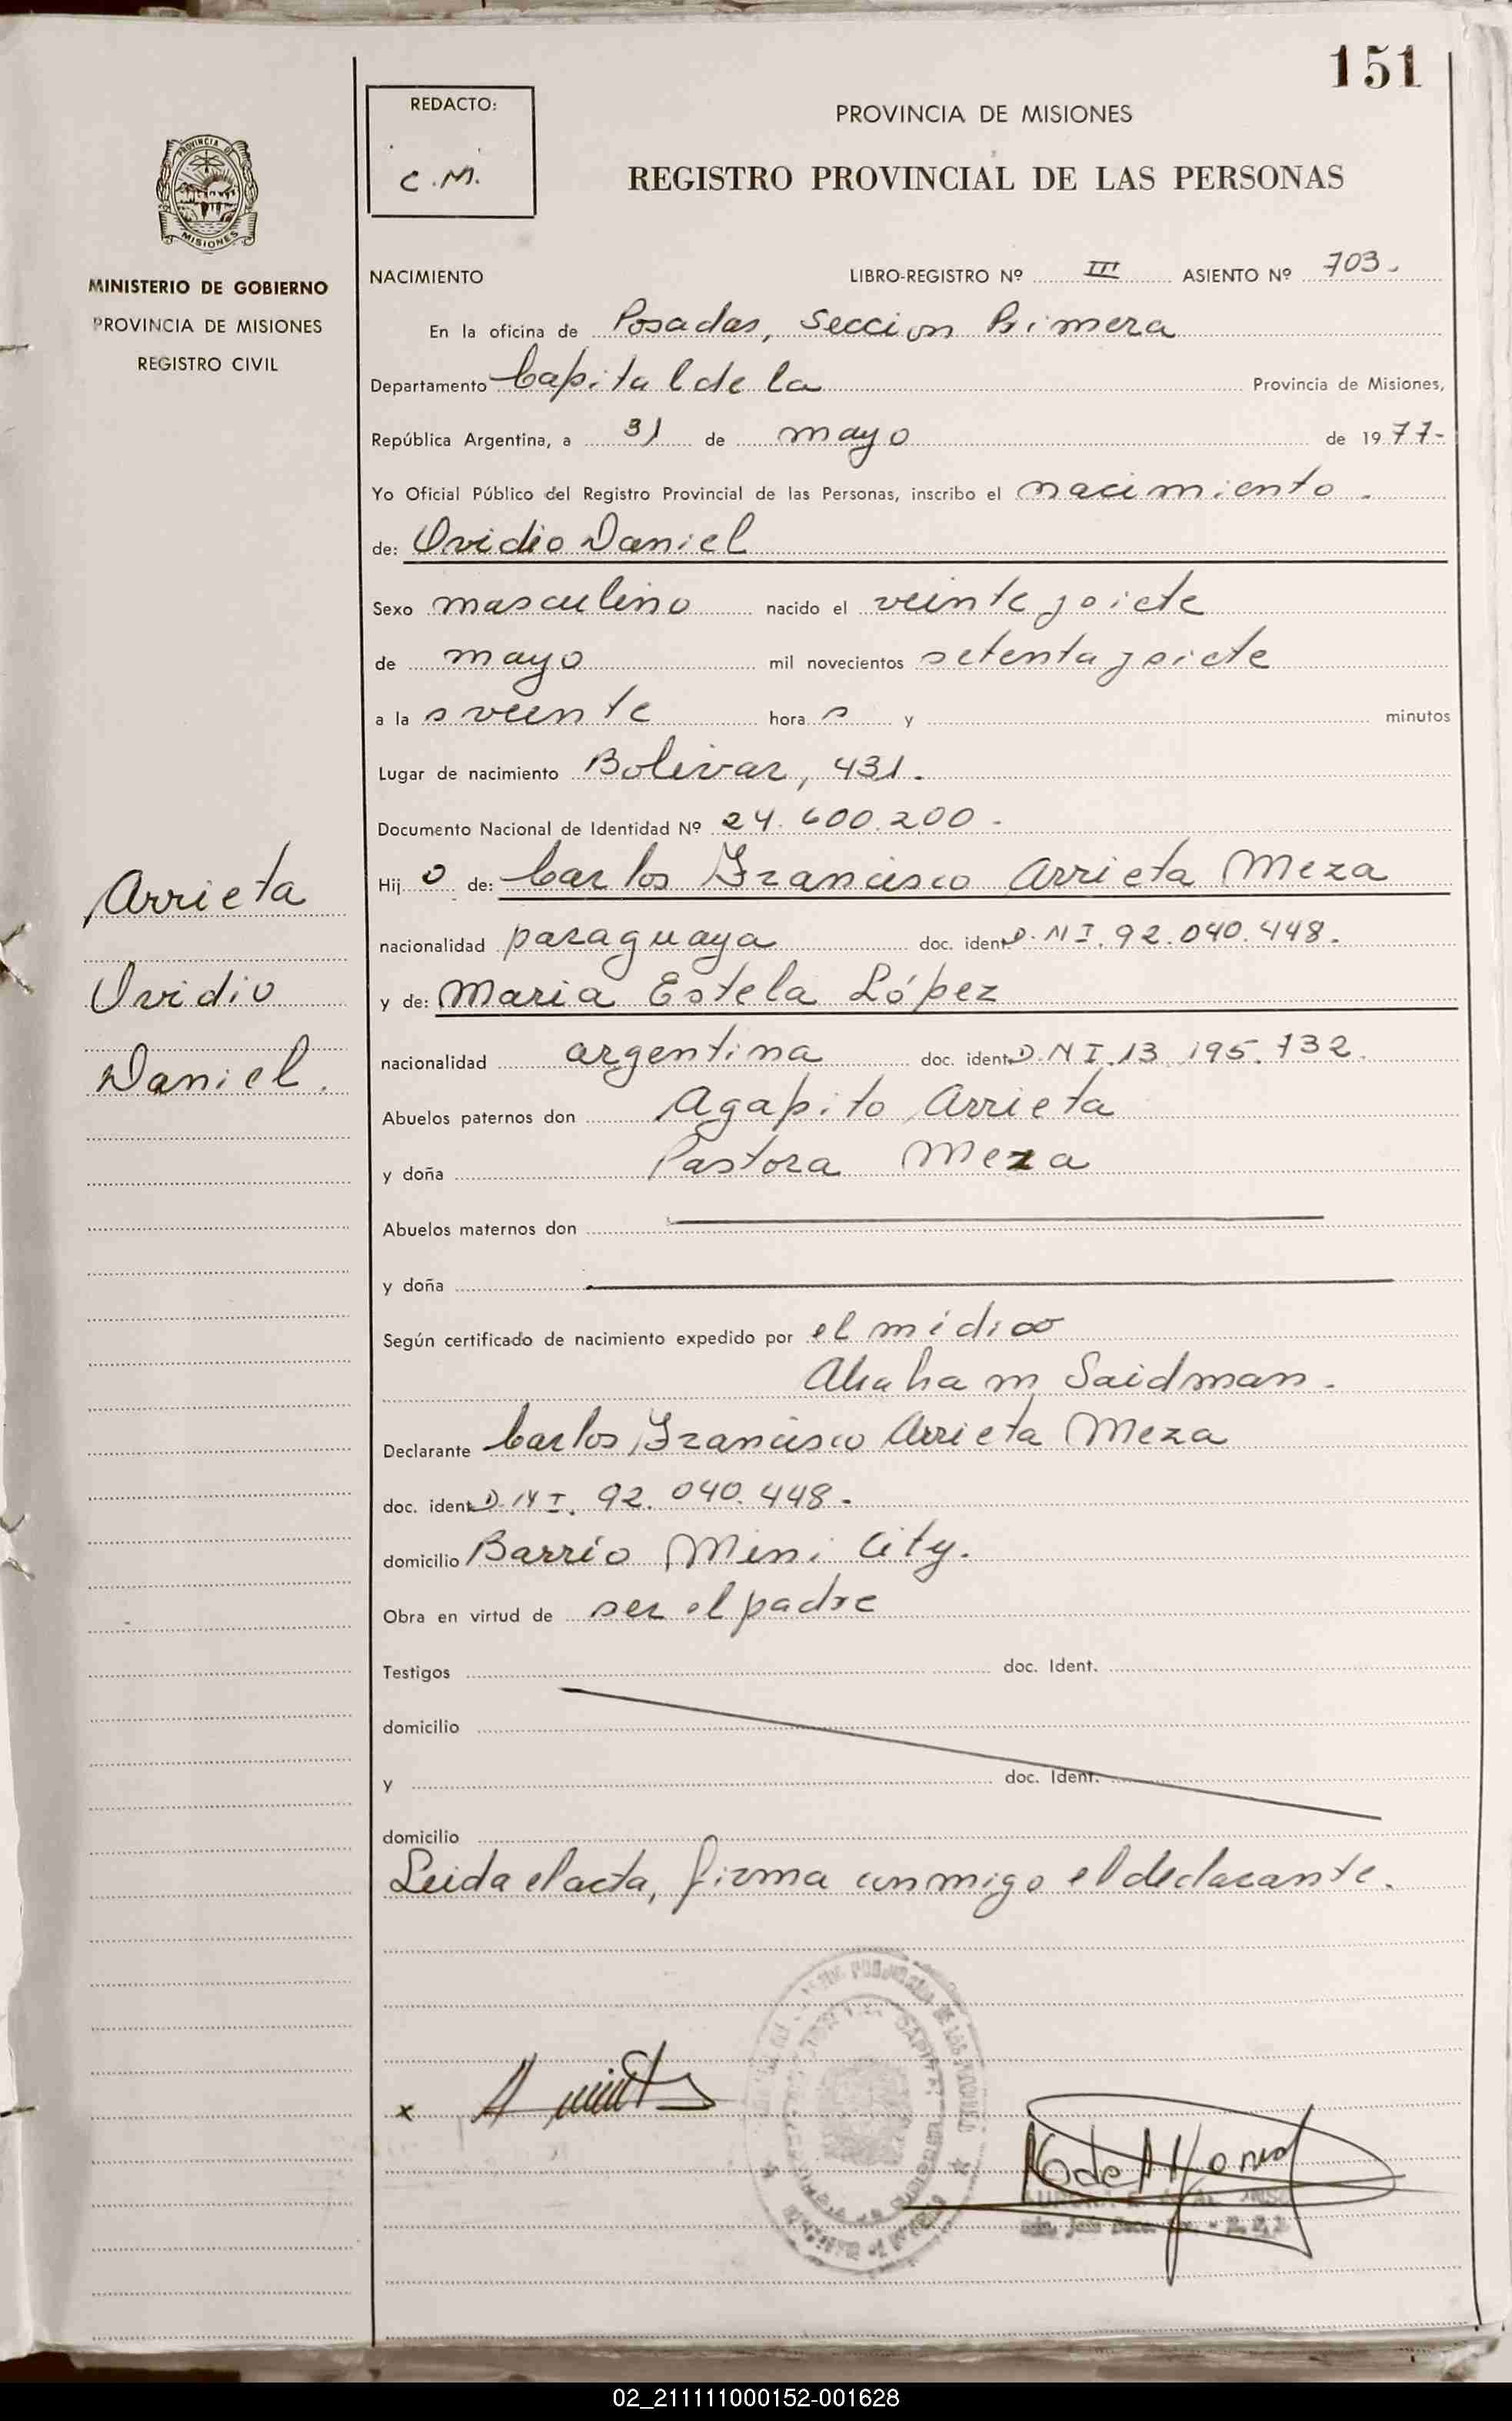 151
REDACTO:
C.M.
PROVINCIA DE MISIONES
REGISTRO PROVINCIAL DE LAS PERSONAS
PROVINCIA DE
MISIONES
MINISTERIO DE GOBIERNO
PROVINCIA DE MISIONES
REGISTRO CIVIL
NACIMIENTO LIBRO-REGISTRO Nº III ASIENTO Nº 703.
En la oficina de Posadas, Seccion Primera
Departamento Capital de la Provincia de Misiones,
República Argentina, a 31 de mayo de 1977-
Yo Oficial Público del Registro Provincial de las Personas, inscribo el nacimiento.
de: Ovidio Daniel
Sexo masculino nacido el veinte y siete
de mayo mil novecientos setenta y siete
a las veinte horas y minutos
Lugar de nacimiento Bolivar, 431.
Documento Nacional de Identidad Nº 24.600.200-
Hijo de: Carlos Francisco Arrieta Meza
nacionalidad paraguaya doc. ident D.N.I. 92.040.448.
y de: Maria Estela López
nacionalidad argentina doc. ident D.N.I. 13.195.732.
Abuelos paternos don Agapito Arrieta
y doña Pastora Meza
Abuelos maternos don
y doña
Según certificado de nacimiento expedido por el médico
Abraham Saidman.
Declarante Carlos Francisco Arrieta Meza
doc. ident D.N.I. 92.040.448.
domicilio Barrio Mini City.
Obra en virtud de ser el padre
Testigos doc. Ident.
domicilio
y doc. Ident.
domicilio
Leida el acta, firma conmigo el declarante.
Arrieta
Ovidio
Daniel.
x
02_211111000152-001628